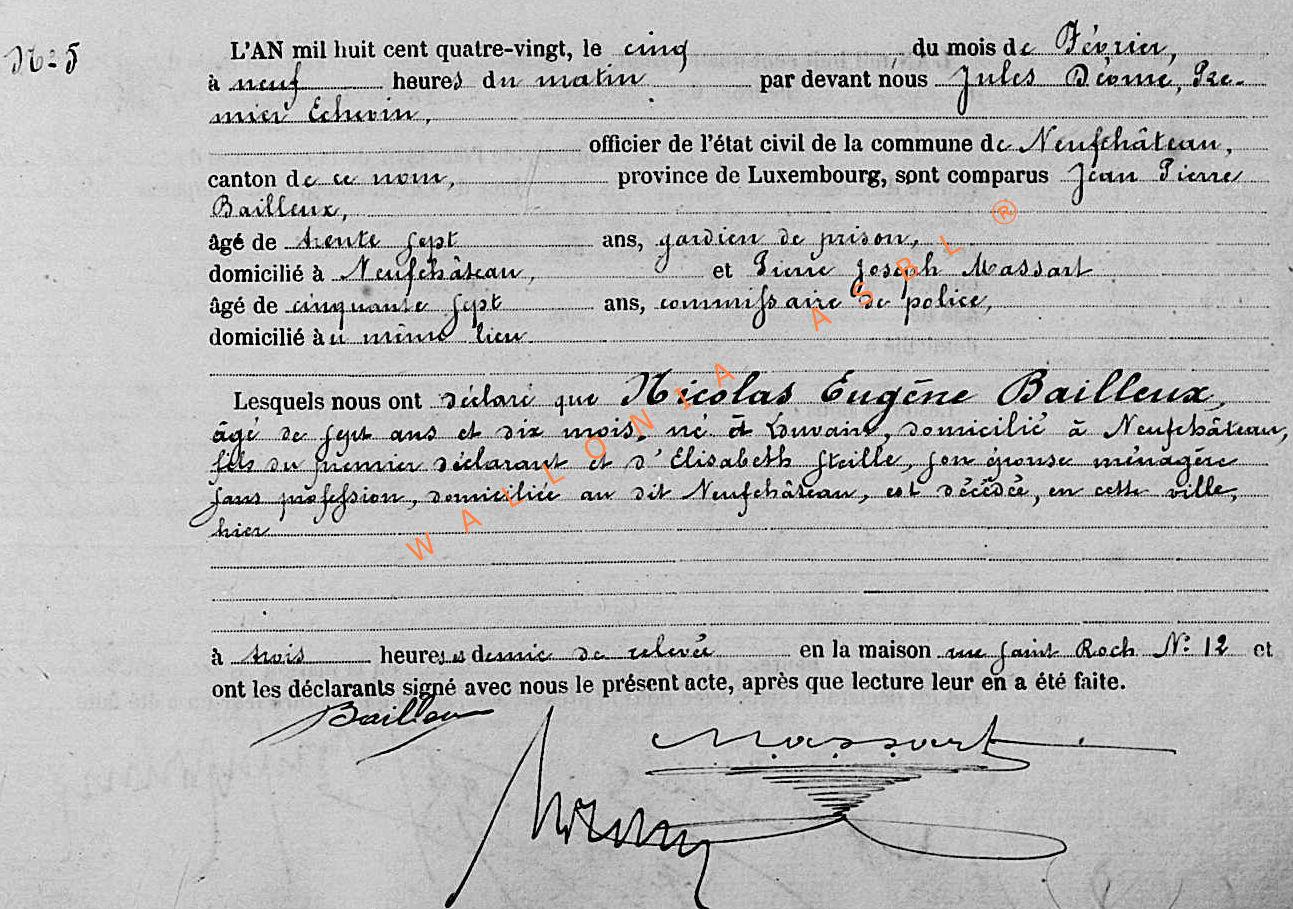 N: 5
L'AN mil huit cent quatre-vingt, le cinq du mois de Février,
à neuf heures du matin par devant nous Jules Déome, Pre-
mier Echevin,
officier de l'état civil de la commune de Neufchâteau,
canton de ce nom, province de Luxembourg, sont comparus Jean Pierre
Bailleux,
âgé de trente sept ans, gardien de prison,
domicilié à Neufchâteau, et Pierre Joseph Massart
âgé de cinquante sept ans, commissaire de police,
domicilié au même lieu
Lesquels nous ont déclaré que Nicolas Eugène Bailleux,
âgé de sept ans et dix mois, né à Louvain, domicilié à Neufchâteau,
fils du premier déclarant et d'Elisabeth Steille, son épouse ménagère
sans profession, domiciliée au dit Neufchâteau, est décédé, en cette ville,
hier
à trois heures et demie de relevée en la maison rue Saint Roch N: 12 et
ont les déclarants signé avec nous le présent acte, après que lecture leur en a été faite.
Bailleux
Massart
WALLONIA ASBL ®